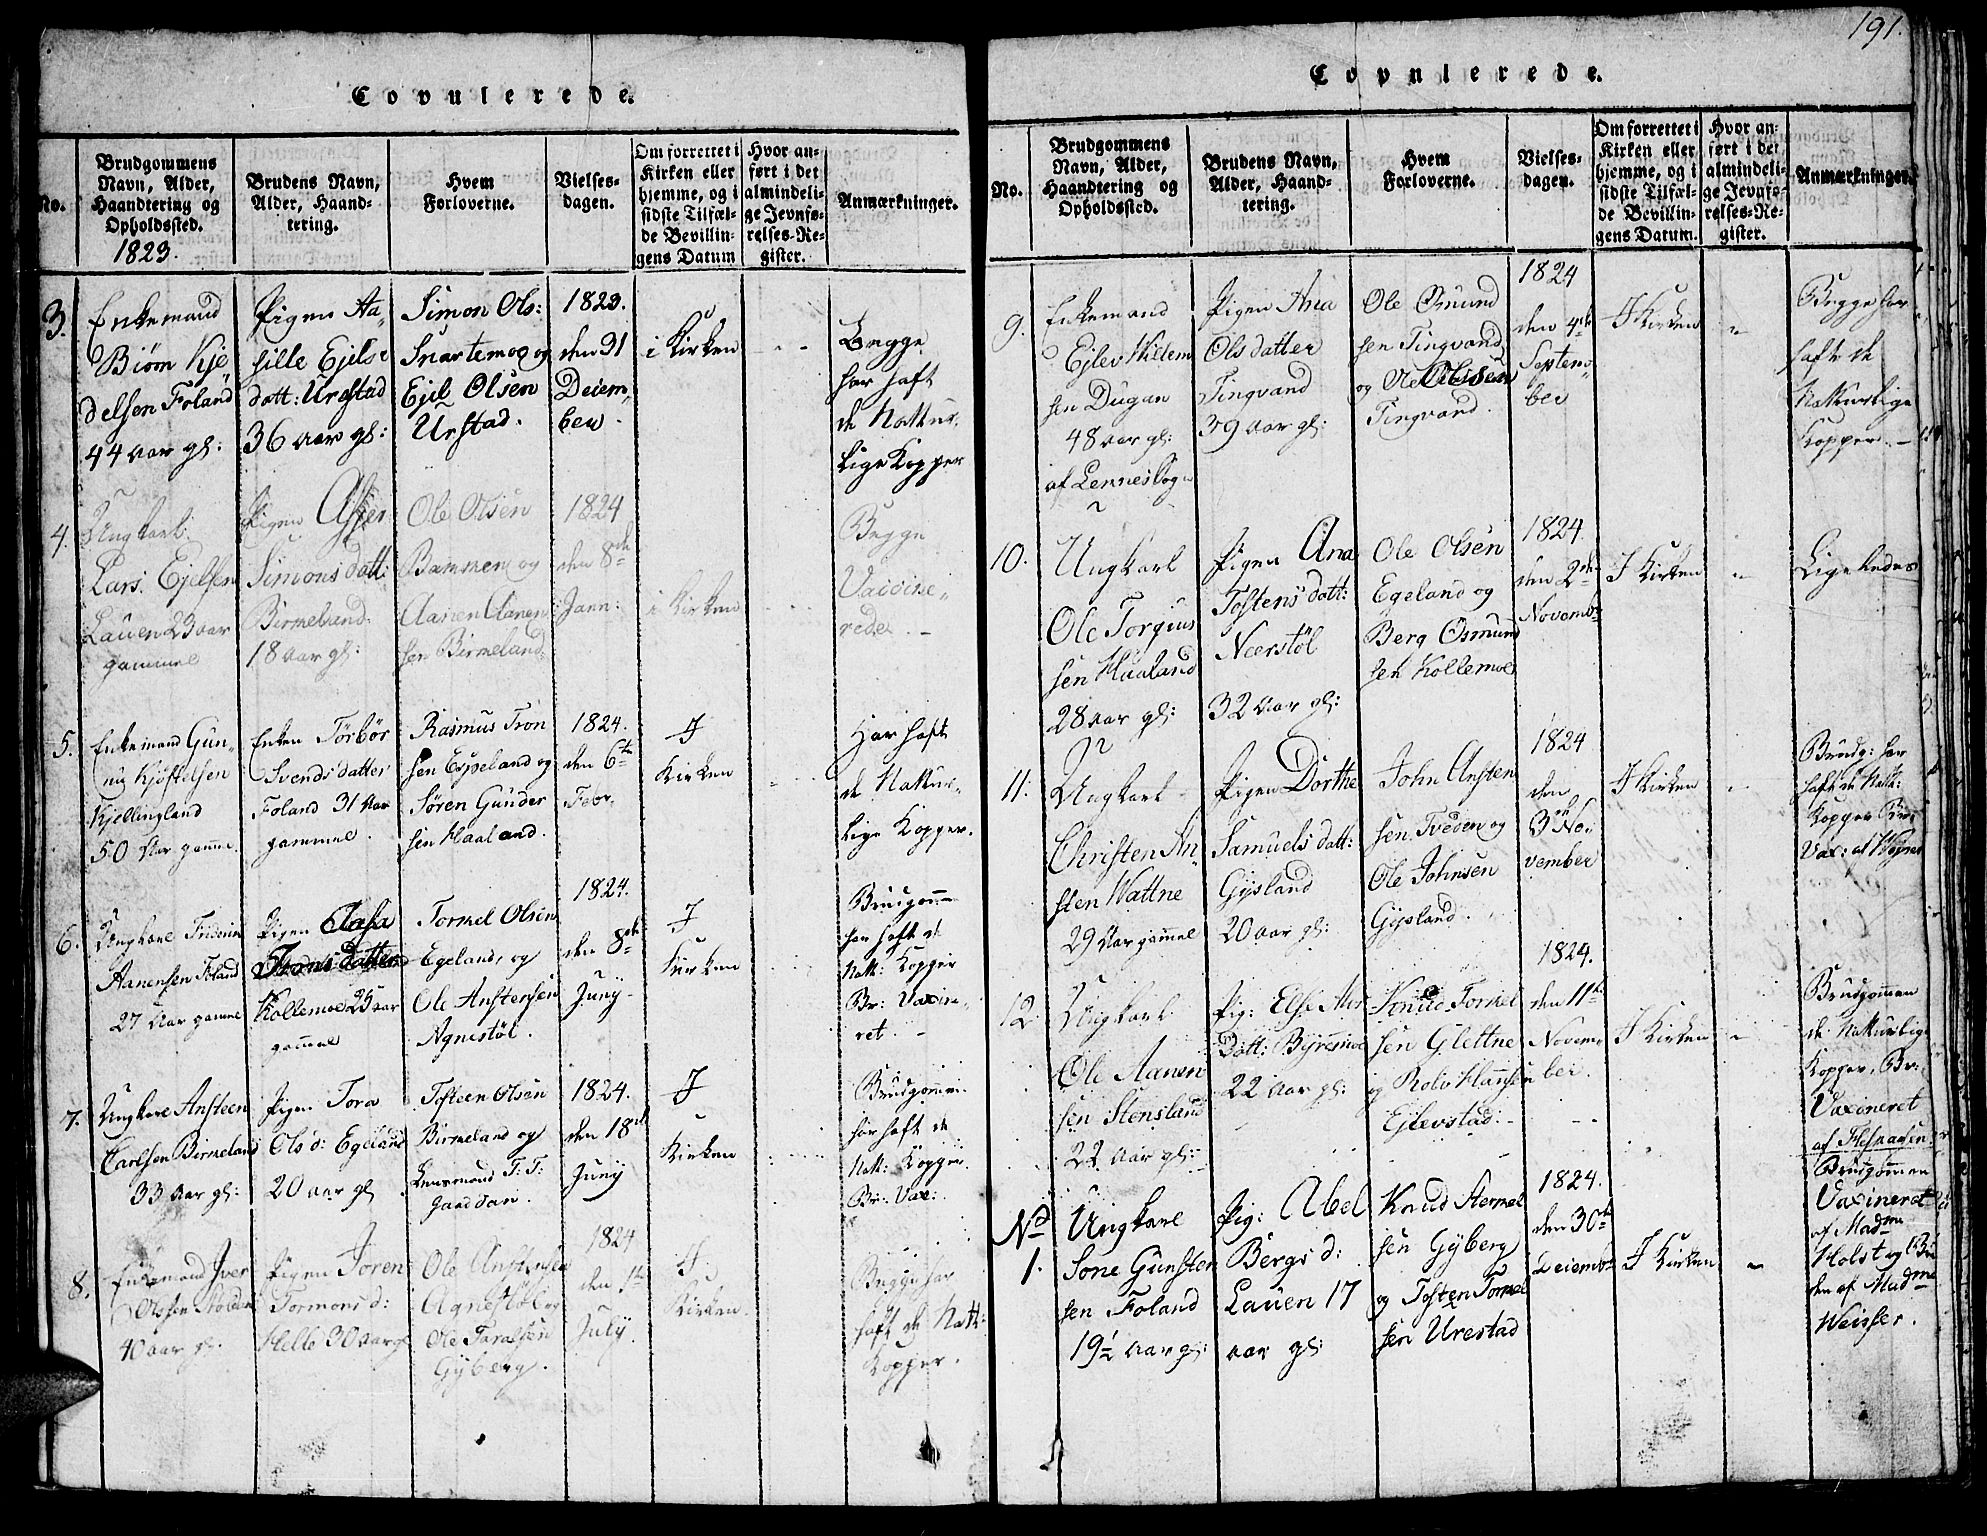 191.
Copulerede.
No.
Brudgommens
Navn, Alder,
Haandtering og
Opholdssted.
1823.
Brudens Navn,
Alder, Haand-
tering.
Hvem
Forloverne.
Vielses-
dagen.
Om forrettet i
Kirken eller
hjemme, og i
sidste Tilfæl-
de Bevillin-
gens Datum
Hvor an-
ført i det
almindeli-
ge Jevnfø-
relses-Re-
gister.
Anmærkninger.
3.
Enkemand
Biørn Kje
delsen Foland
44 aar gl:
Pigen Aa
sille Ejels
datt: Urestad
36 aar gl:
Simon Ols:
Snartemog og
Ejel Olsen
Urstad.
1823.
den 31
Decem
ber.
i Kirken
Begge
har haft
de Nattur
lige Kopper
4.
Ungkarl
Lars Ejelsen
Lauen 23 aar
gammel
Pigen Asser
Simons datt:
Birmeland
18 aar gl:
Ole Olsen
Bammen og
Aanen Aanen
sen Birmeland
1824
den 8de
Jann:
i Kirken
Begge
Vaccine
rede. –
5.
Enkemand Gun
Kjellingland
50 Aar gamme.
Enken Törbör
Svends datter
Foland 31 Aar
gammel.
Rasmus Tron
sen Espeland og
Sören Gunder
sen Haaland.
1824.
den 6te
Febr.
I
Kirken
Har haft
de Nattur
lige Kopper.
6.
Ungkarl
Aanensen Foland
27 Aar gamme
Pigen Aasa
datter
Kollemoe 25 aar
gammel
Tormel Olsen
Egeland, og
Ole Anstensen
Agnestöl.
1824.
den 8de
Juny
I
Kirken
Brudgomme
har haft de
Natt: Kopper
Br: Vaxine
ret –
7.
Ungkarl Ansteen
Carlsen Birmeland
33 Aar gl:
Pigen Tora
Ols d: Egeland
20 aar gl
Tosteen Olsen
Birmeland og
Lensmand T: T:
Jaaddan.
1824.
den 18de
Juny
I
Kirken
Brudgommen
har haft de
Natt: Kopper
Br: Vax:
8.
Enkemand Jver
Olssen
40 aar gl.
Pigen Joren
Tormons d:
Helle 30 aar gl
Ole Anstensen
Agnestöl og
Ole Taralsen
Gyberg.
1824
den 1te
July.
I
Kirken.
Begge har
haft de Natt:
Kopper.
Copulerede.
No.
Brudgommens
Navn, Alder,
Haandtering og
Opholdssted.
Brudens Navn,
Alder, Haand-
tering.
Hvem
Forloverne.
Vielses-
dagen.
Om forrettet i
Kirken eller
hjemme, og i
sidste Tilfæl-
de Bevillin-
gens Datum.
Hvor an-
ført i det
almindeli-
ge Jevnfø-
relses-Re-
gister.
Anmærkninger.
9.
Enkemand
Ejlev Hildem
sen Dugan
48 aar gl:
af Lennes Sogn
Pigen Ana
Olsdatter
Tingvand
39 aar gl:
Ole Osmund
sen Tingvand
og Ole Olssen
Tingvand.
1824
den 4de
Septem
ber
I Kirken
Begge har
hafte de
Natturlige
Kopper –
10.
Ungkarl
Ole Torgius
sen Haaland
28 aar gl:
Pigen Ana
Tostens datt:
Neerstöl
32 Aar gl:
Ole Olsen
Egeland og
Berg Osmund
sen Kollemoe
1824.
den 2den
Novembr
I Kirken
Ligeledes
11.
Ungkarl
Christen An
sten Wattne
29 Aar gammel
Pigen Dorthe
Samuels datt:
Gysland
20 aar gl:
John Ansten
sen Tveden og
Ole Johnsen
Gysland.
1824
den
3de No
vember
I Kirken
Brudg: har
haft de Natt:
Kopper
Vax:
12.
Ungkarl
Ole Aanen
sen Stensland
22 Aar gl:
Pig: Else
Datt: Byremoe
22 aar gl:
Knud Tormel
sen Glettne
og Roliv Hansen
Ejlevstad.
1824.
den 11te
Novem
ber.
I Kirken
Brudgommen
de Naturlige
Kopper, Br:
Vaxineret
af
No
1.
Ungkarl
Sone Gunsten
sen Foland
19½ aar gl:
Pig: Abel
Bergs d:
Lauen 17
aar gl:
Knud Stermel
sen Gyberg
og Tosten Tormel
sen Urestad
1824.
den 30te
Decembr
I Kirken
Brudgommen
Vaxineret
af Madme
Holst og Bru
den af Madme
Weisser.